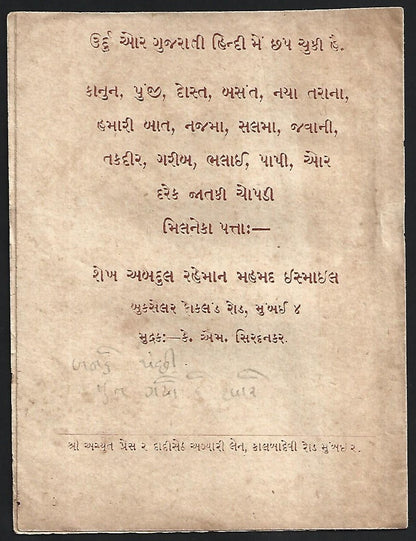 ઉર્દુ ઓર ગુજરાતી હિન્દી મેં છપ ચુકી હૈ.
કાનુન, પુંજી, દોસ્ત, બસંત, નયા તરાના,
હમારી બાત, નજમા, સલમા, જવાની,
તકદીર, ગરીબ, ભલાઈ, પાપી, ઓર
દરેક જાતકી ચોપડી
મિલનેકા પત્તાઃ—
શેખ અબદુલ રહેમાન મહમદ ઈસ્માઈલ
બુકસેલર ફોકલંડ રોડ, મુંબઈ ૪
મુદ્રકઃ—કે. એમ. સિરદનકર.
બનકે પંછી
શ્રી અચ્યુત પ્રેસ ૨ દાદીસેઠ અગ્યારી લેન, કાલબાદેવી રોડ મુંબઈ ૨.